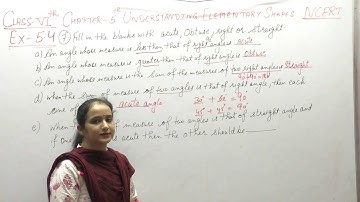 Class-VIth Chapter-5th Understanding Elementary Shapes NCERT
Ex-5.4 (7) Fill in the blanks with acute, Obtuse, right or straight
a) An angle whose measure is less than that of right angle is acute
b) An angle whose measure is greater than that of right angle is Obtuse
c) An angle whose measure is the sum of the measures of two right angle is Straight
90+90=180
d) when the sum of measure of two angles is that of right angle, then each
one of acute angle 30° + 60° = 90°
45° + 45° = 90°
e) When measure of two angles is that of straight angle and
if one is acute then the other should be